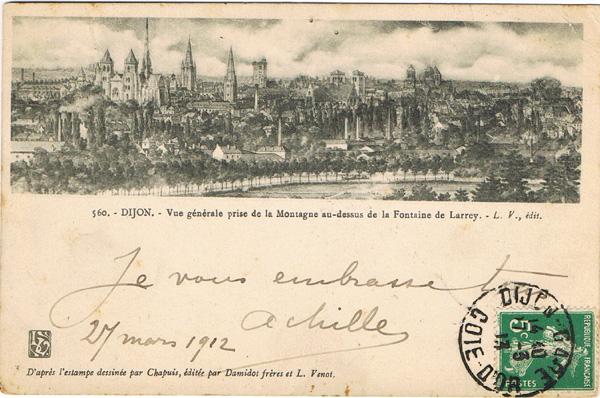 560. - DIJON. - Vue générale prise de la Montagne au-dessus de la Fontaine de Larrey. - L. V., édit.
Je vous embrasse
Achille
27 mars 1912
DIJON-GARE
14 40
13
COTE-D'OR
REPUBLIQUE FRANÇAISE
5c
POSTES
D'après l'estampe dessinée par Chapuis, éditée par Damidot frères et L. Venot.